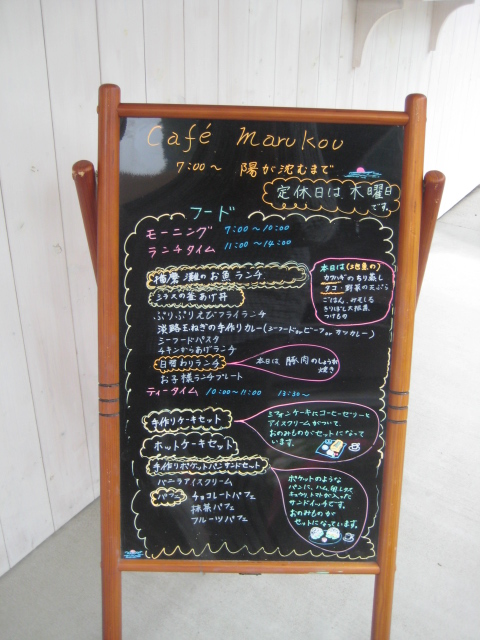 Café Marukou
7:00〜 陽が沈むまで
定休日は木曜日
です。
フード
モーニング 7:00〜10:00
ランチタイム 11:00〜14:00
播磨灘のお魚ランチ
本日は(地魚の)
カワハギのちり蒸し
タコ・野菜の天ぷら
ごはん、みそしる
つけもの
シラスの釜あげ丼
ぷりぷりえびフライランチ
淡路玉ねぎの手作りカレー(シーフードorビーフorカツカレー)
シーフードパスタ
チキンからあげランチ
日替わりランチ
本日は 豚肉のしょうが
焼き
お子様ランチプレート
ティータイム 10:00〜11:00 13:30〜
手作りケーキセット
シフォンケーキにコーヒーゼリーと
アイスクリームがついて
おのみものがセットになって
います。
ホットケーキセット
手作りポケットパンサンドセット
ポケットのような
パンに、ハム、卵、レタス、
キュウリ、トマトが入った
サンドイッチです。
おのみものが
セットになっています。
バニラアイスクリーム
パフェ チョコレートパフェ
抹茶パフェ
フルーツパフェ